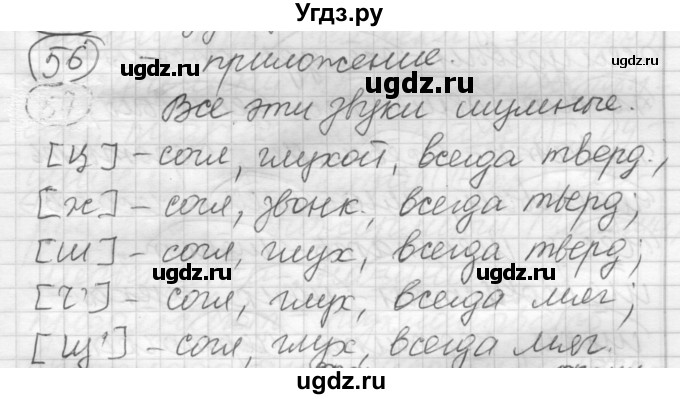 Угдз.ру
56 – приложение.
57 Все эти звуки шумные.
[ц] – согл, глухой, всегда тверд.,
[ж] – согл, звонк., всегда тверд;
[ш] – согл, глух, всегда тверд;
[ч'] – согл, глух, всегда мяг;
[щ'] – согл, глух, всегда мяг.
ugdz.ru
ugdz.ru
ugdz.ru
ugdz.ru
ugdz.ru
ugdz.ru
ugdz.ru
ugdz.ru
ugdz.ru